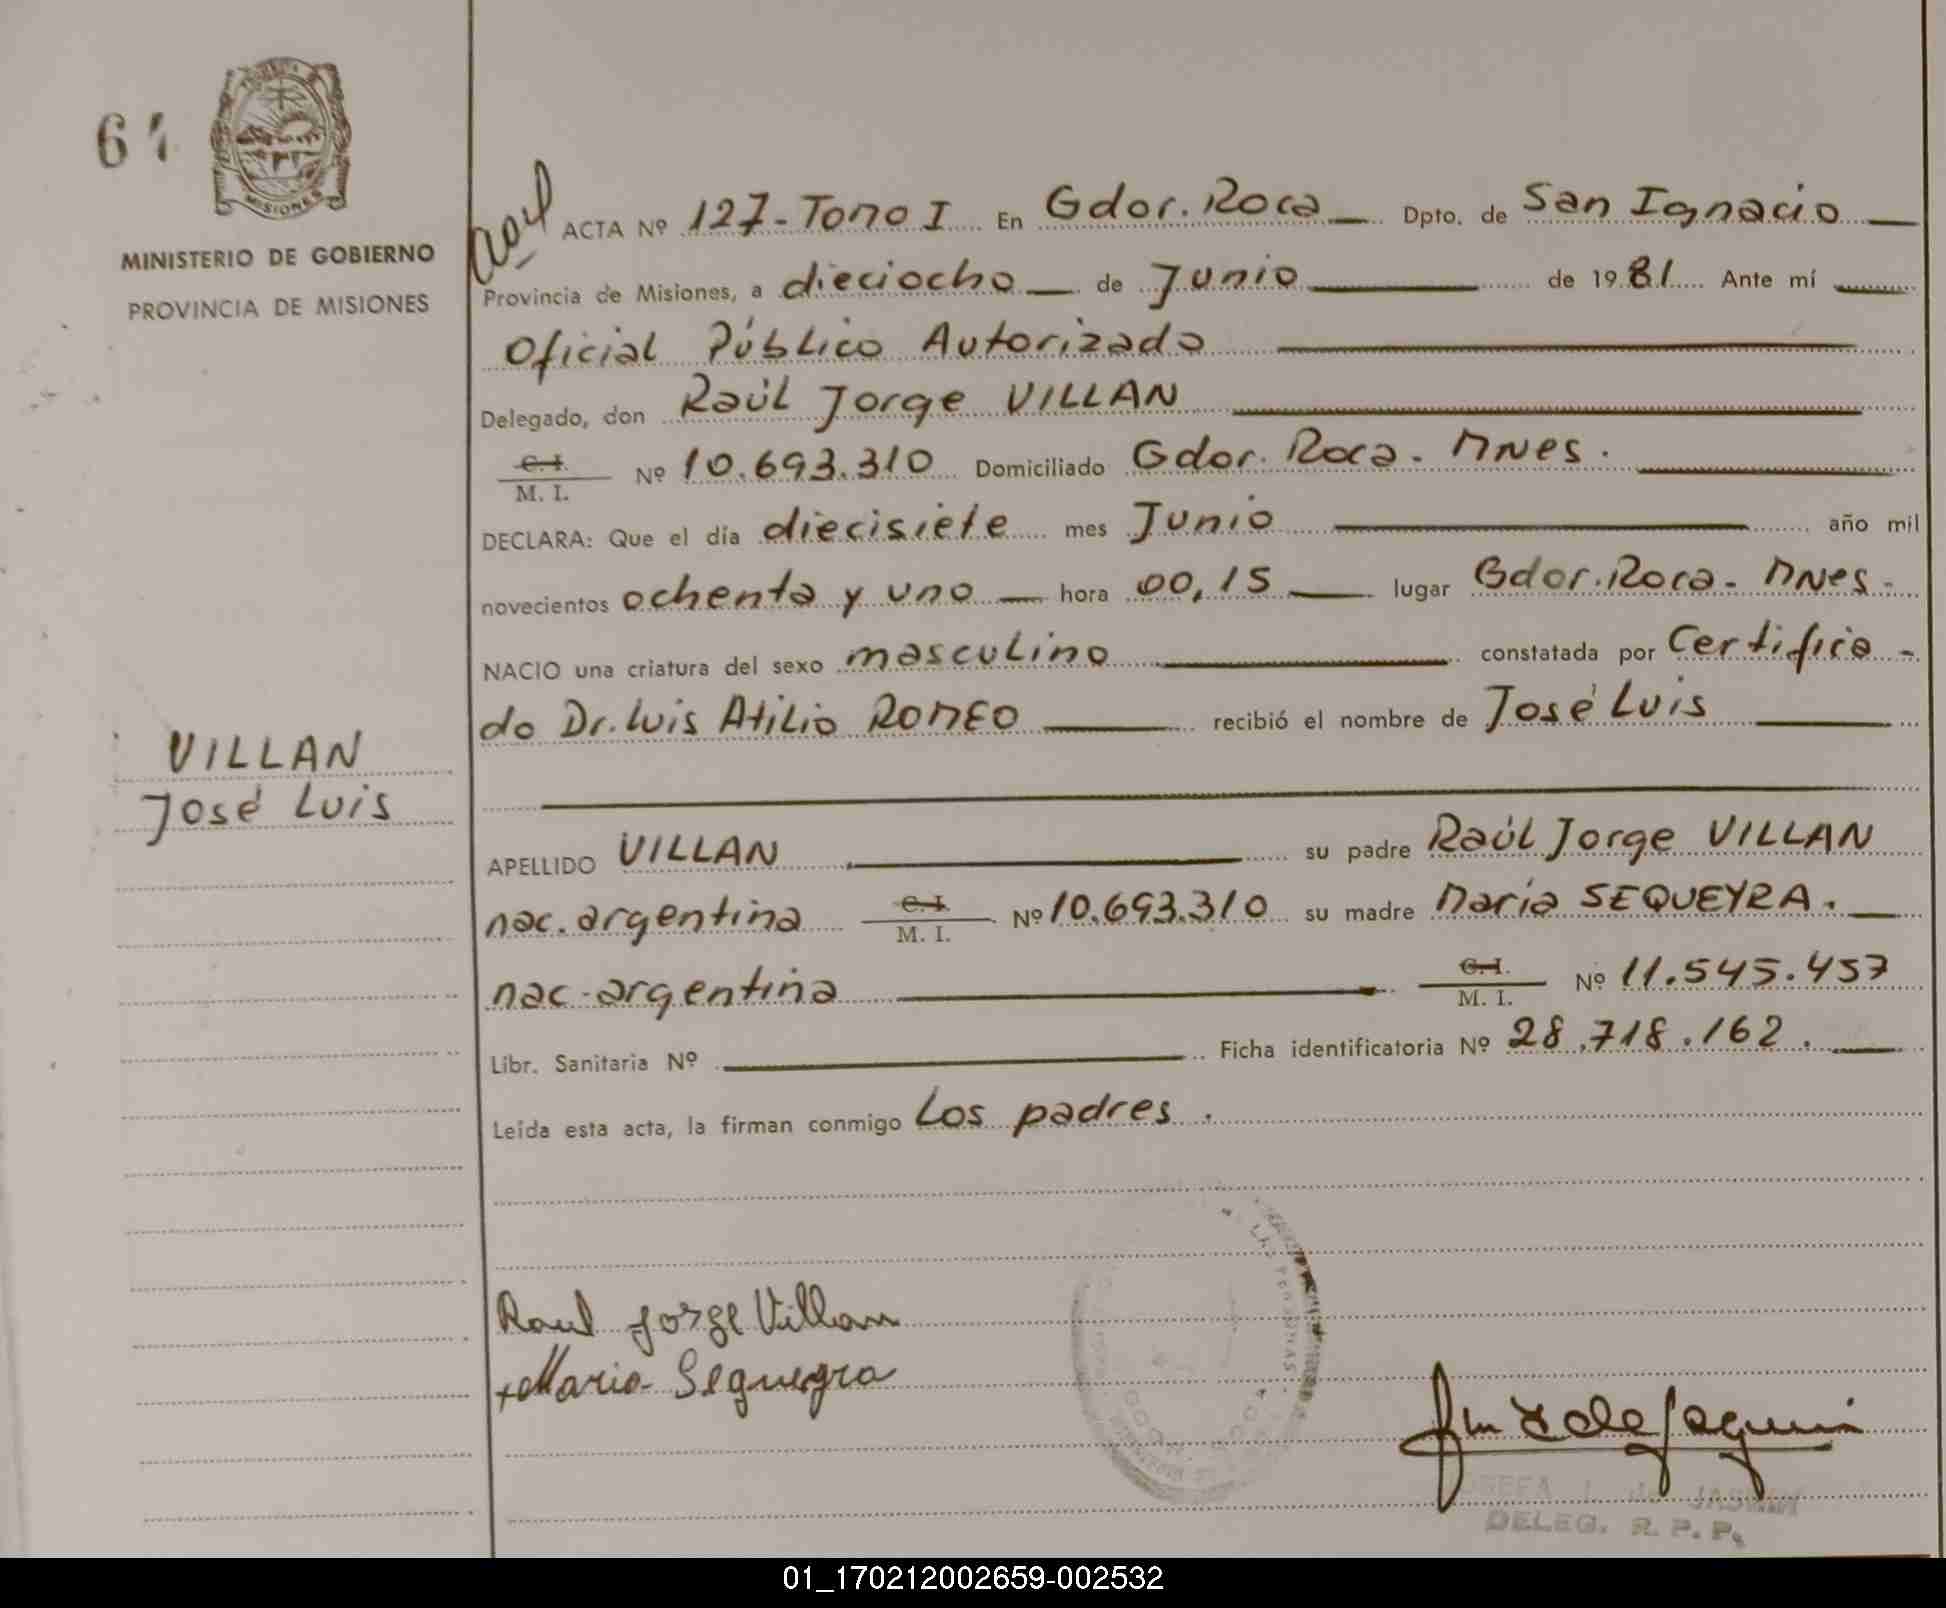 61
MISIONES
MINISTERIO DE GOBIERNO
PROVINCIA DE MISIONES
VILLAN
José Luis
ACTA Nº 127-Tomo I En Gdor. Roca Dpto. de San Ignacio
Provincia de Misiones, a dieciocho de Junio de 1981 Ante mí
Oficial Público Autorizado
Delegado, don Raúl Jorge VILLAN
C. I.
M. I. Nº 10.693.310 Domiciliado Gdor. Roca. MNES.
DECLARA: Que el día diecisiete mes Junio año mil
novecientos ochenta y uno hora 00,15 lugar Gdor. Roca. MNES.
NACIO una criatura del sexo masculino constatada por Certifica-
do Dr. Luis Atilio ROMEO recibió el nombre de José Luis
APELLIDO VILLAN su padre Raúl Jorge VILLAN
nac. argentina C. I. M. I. Nº 10.693.310 su madre María SEQUEYRA.
nac. argentina C. I. M. I. Nº 11.545.457
Libr. Sanitaria Nº Ficha identificatoria Nº 28.718.162.
Leída esta acta, la firman conmigo Los padres.
Raul Jorge Villan
Maria Sequeyra
DELEG. R. P. P.
01_170212002659-002532